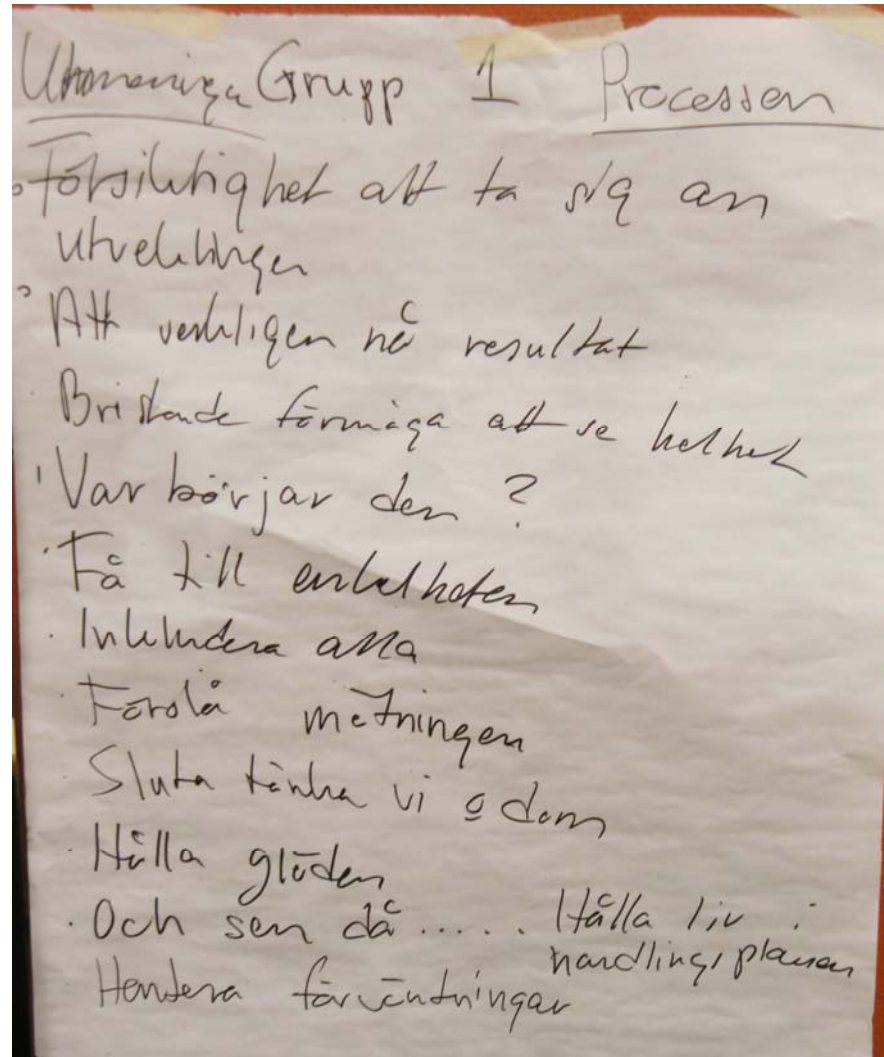 Utmaningar Grupp 1 Processen
Försiktighet att ta sig an
utvecklingen
Att verkligen nå resultat
Bristande förmåga att se helhet
Var börjar den?
Få till enkelheten
Inkludera alla
Förstå mätningen
Sluta tänka vi o dom
Hålla glöden
Och sen då..... Hålla liv i
handlingsplanen
Hantera förväntningar